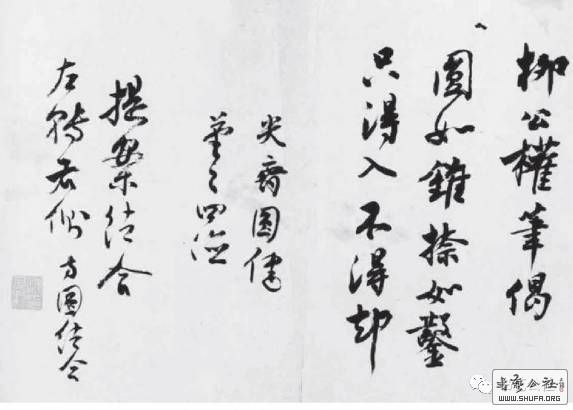 柳公權筆偈
圓如錐捺如鑿
只得入不得却
尖齊圓健
筆之四德
提案結合
左轉右側 方圓結合
書法公社
WWW.SHUFA.ORG